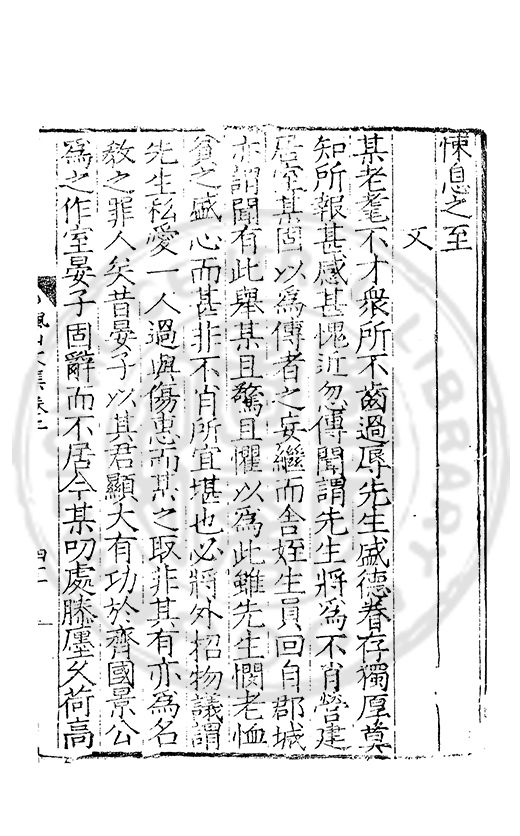 悚息之至
又
某老耄不才衆所不齒過辱先生盛德眷存獨厚莫
知所報甚感甚愧近忽傳聞謂先生將為不肖營建
居室某固以為傳者之妄繼而舎姪生員回自郡城
亦謂聞有此舉某且驚且懼以為此雖先生憫老恤
貧之盛心而甚非不肖所宜堪也必將外招物議謂
先生私愛一人過與傷惠而某之取非其有亦為名
敎之罪人矣昔晏子以其君顯大有功於齊國景公
為之作室晏子固辭而不居今某叨處滕廛又荷高